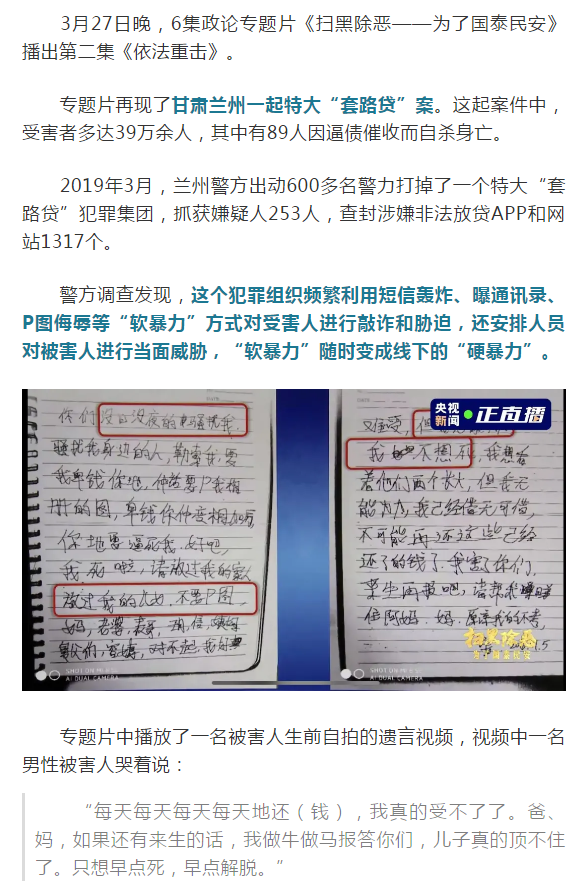 3月27日晚，6集政论专题片《扫黑除恶——为了国泰民安》
播出第二集《依法重击》。
专题片再现了甘肃兰州一起特大“套路贷”案。这起案件中，
受害者多达39万余人，其中有89人因逼债催收而自杀身亡。
2019年3月，兰州警方出动600多名警力打掉了一个特大“套
路贷”犯罪集团，抓获嫌疑人253人，查封涉嫌非法放贷APP和网
站1317个。
警方调查发现，这个犯罪组织频繁利用短信轰炸、曝通讯录、
P图侮辱等“软暴力”方式对受害人进行敲诈和胁迫，还安排人员
对被害人进行当面威胁，“软暴力”随时变成线下的“硬暴力”。
你们没日没夜的骚扰我
骚扰我身边的人，勒索我，要
我拿钱你地，仲话要P我相
册的图，拿钱你仲变相加
你地要逼死我，好吧，
我死啦，请放过我的家人
放过我的女，不要P图，
妈，老婆，
对不起，我
SHOT ON MI
AI DUAL CAMERA
央视新闻 正直播
我不想死，我想看
着他们两个长大，但我无
能为力，我已经借无可借，
不可能再还这些已经
还了的钱了，我害了你们，
来生再报吧，请帮我
但阿妈，妈，原谅我的不孝，
扫黑除恶
为了国泰民安
SHOT ON MI
AI DUAL CAMERA
专题片中播放了一名被害人生前自拍的遗言视频，视频中一名
男性被害人哭着说：
“每天每天每天每天地还（钱），我真的受不了了。爸、
妈，如果还有来生的话，我做牛做马报答你们，儿子真的顶不住
了。只想早点死，早点解脱。”